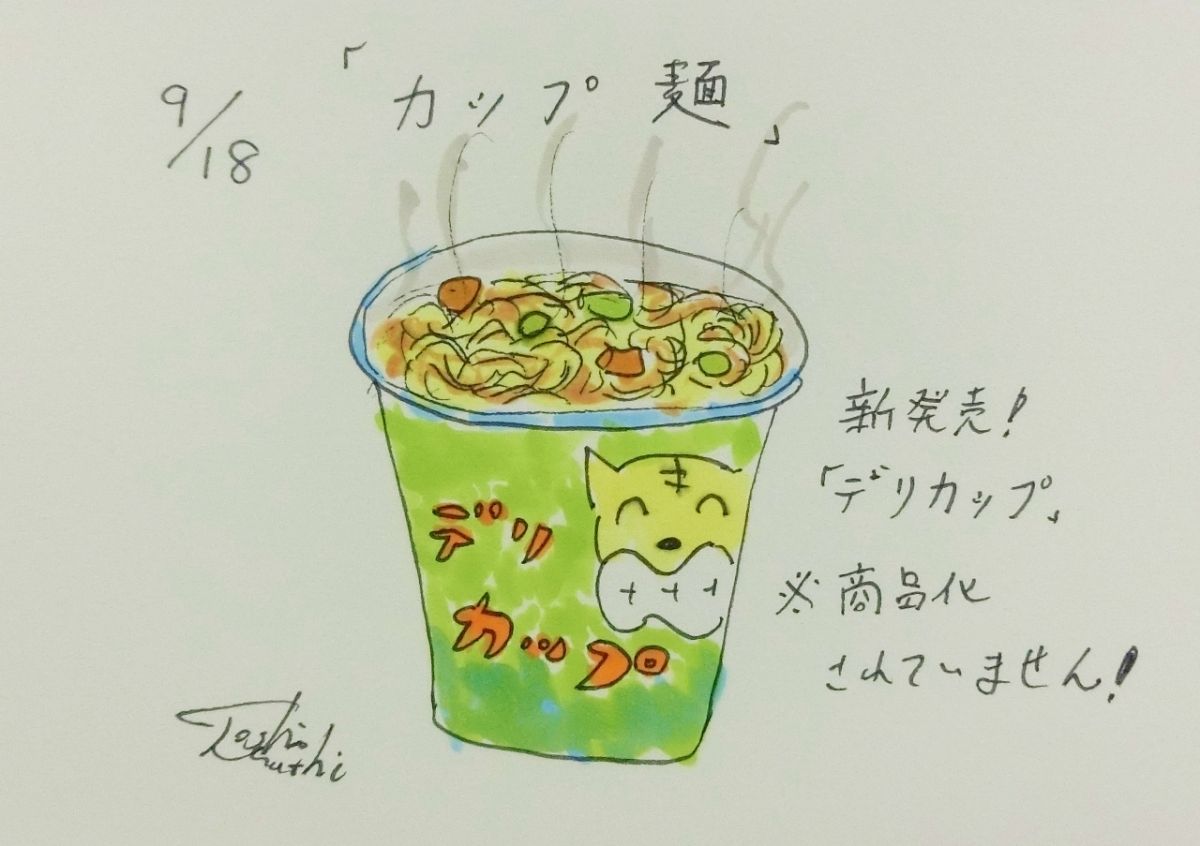 9/18
「カップ麺」
デリ
カップ
新発売!
「デリカップ」
※商品化
されていません!